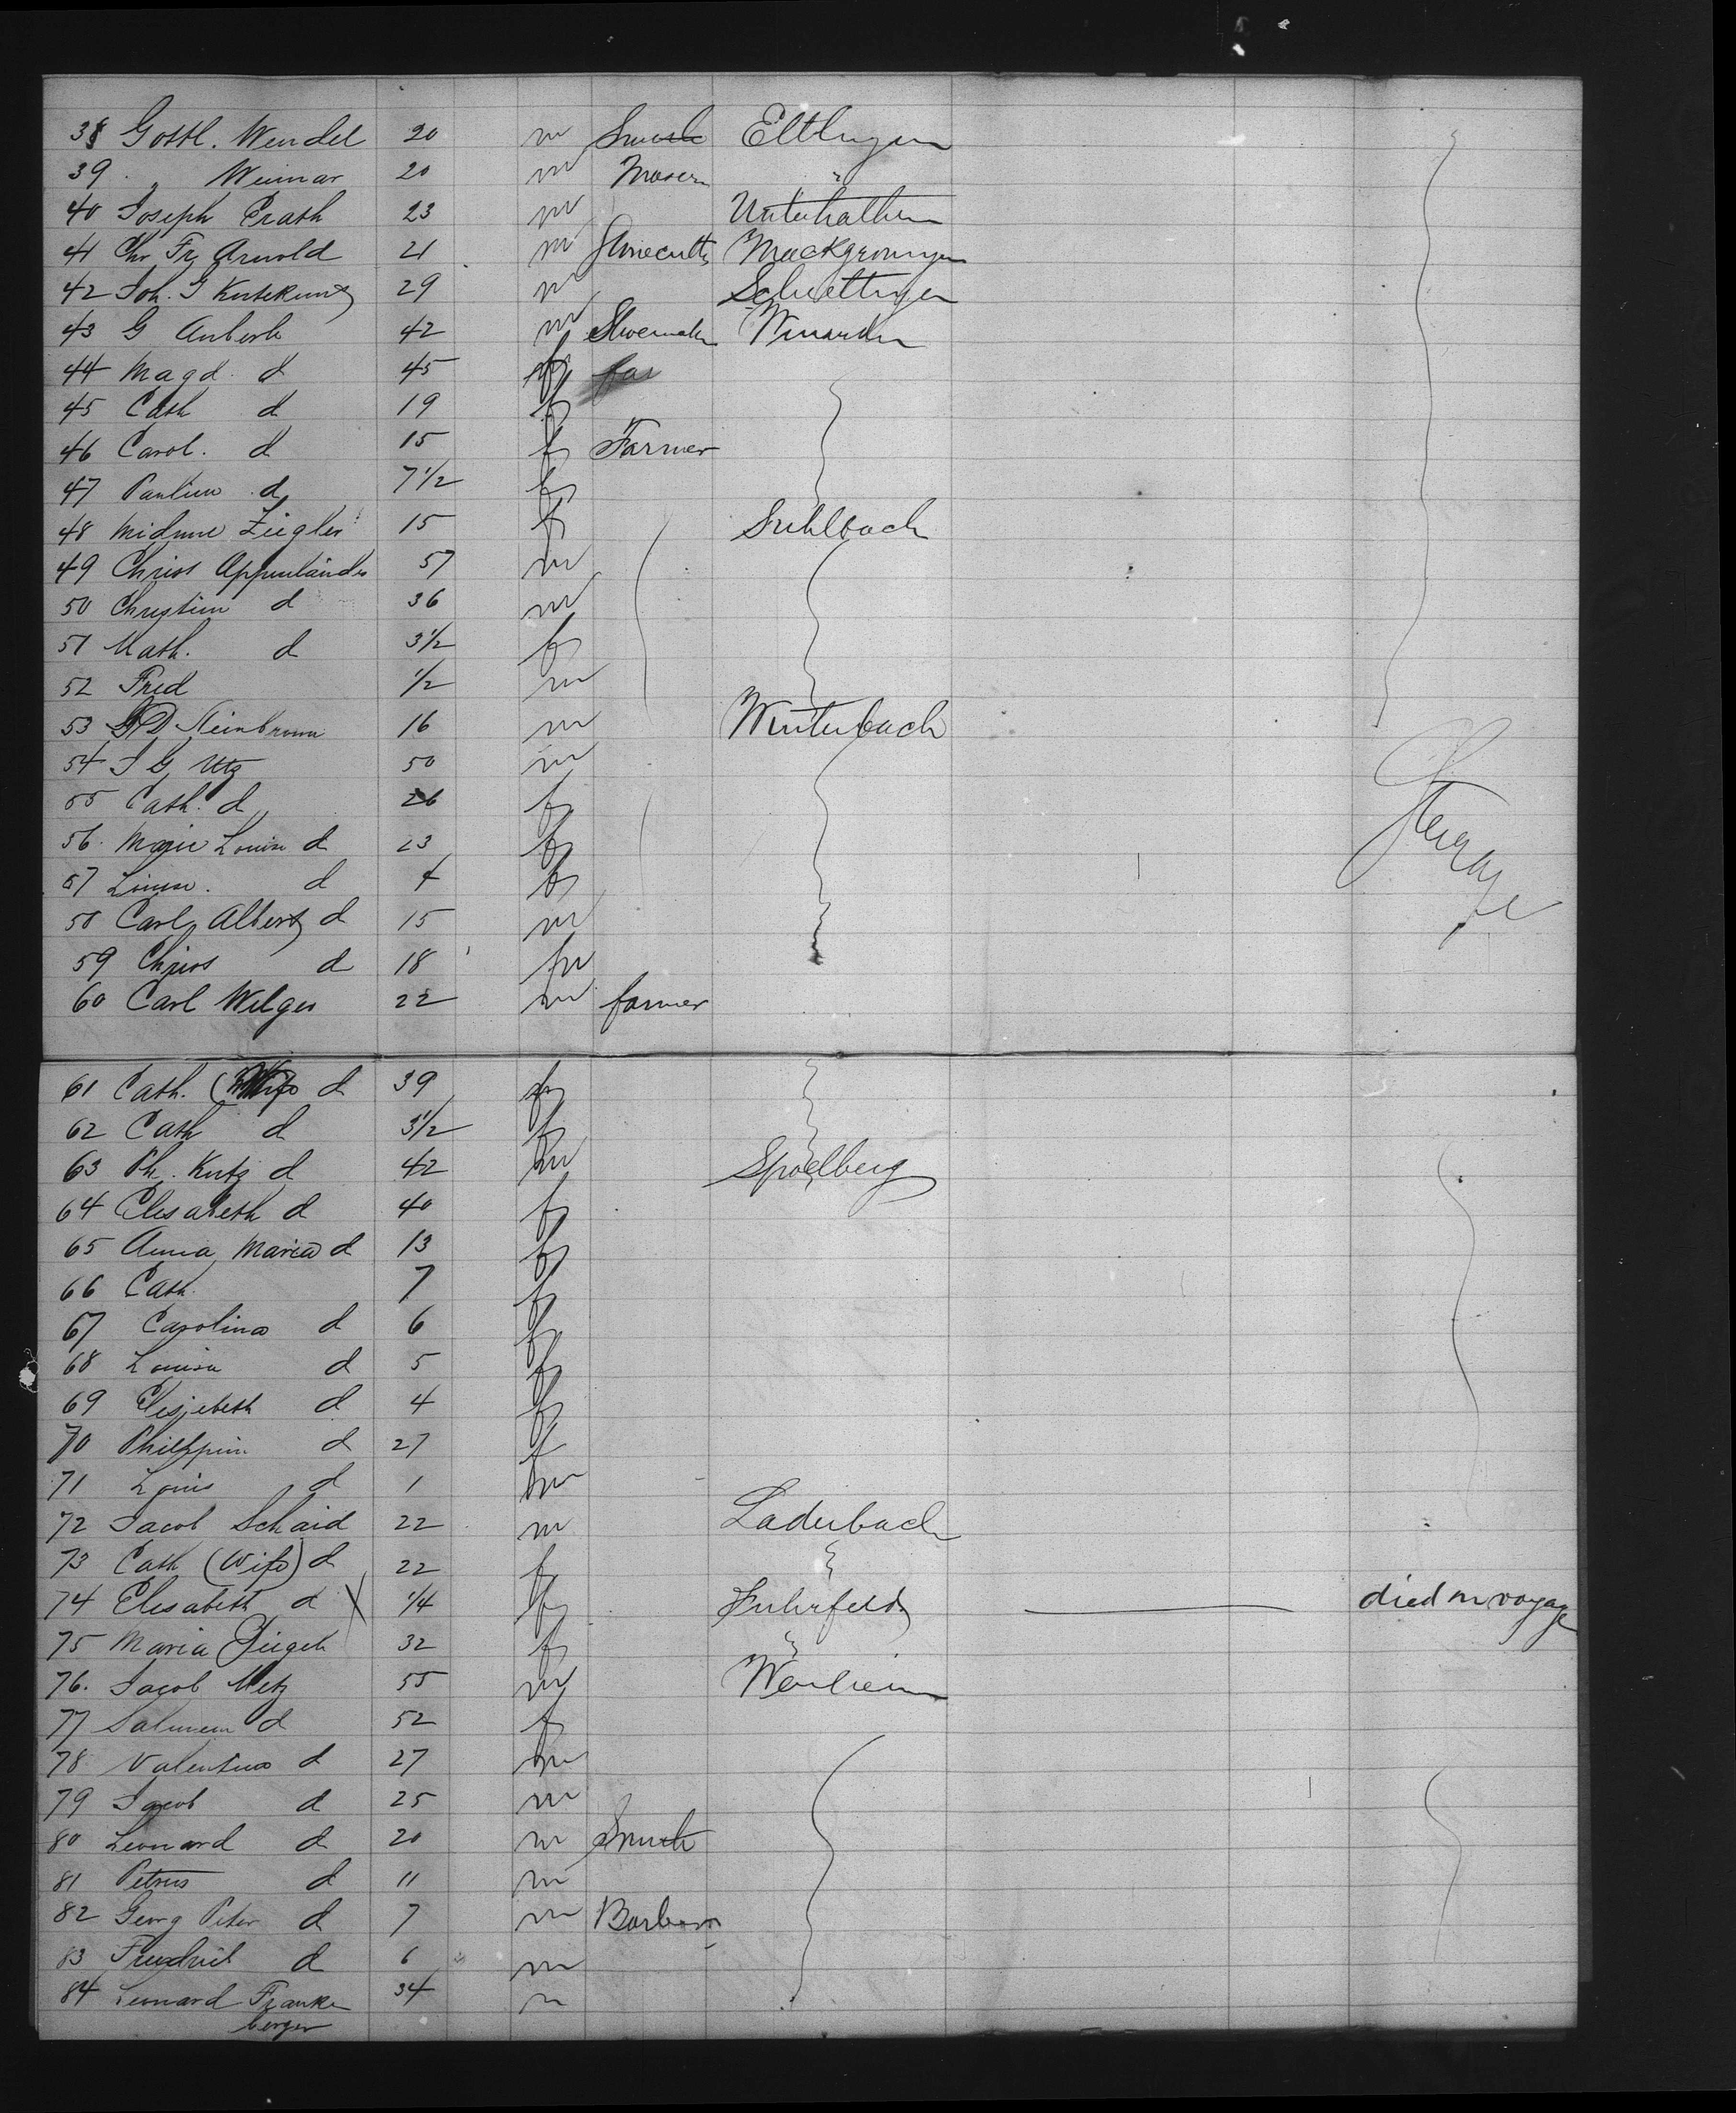 38 Gottl. Wendel 20 m Eltingen
39 " Weimar 20 m Mason "
40 Joseph Erath 23 m
41 Chr Fr Arnold 21 m Stonecutter Mackgroningen
42 Joh. G Kutekunz 29 m Schwettingen
43 G Auberle 42 m Shoemaker Winarden
44 Magd. d 45 f far
45 Cath d 19 f
46 Carol. d 15 f Farmer
47 Paulin d 7 1/2 f
48 Ziegler 15 f Suhlbach
49 Christ Appenländer 57 m
50 Christian d 36 m
51 Math. d 3 1/2 f
52 Fred 1/2 m
53 G D Steinbrunn 16 m Winterbach
54 J G Utz 50 m
55 Cath. d 26 f
56. Marie Louise d 23 f Sterage
57 d 4 f
58 Carl Albert d 15 m
59 Christ d 18 m
60 Carl Welger 22 m farmer
61 Cath. (Wife d 39 f
62 Cath d 3 1/2 f
63 Ph. Kutz d 42 m Spielberg
64 Elisabeth d 40 f
65 Anna Maria d 13 f
66 Cath. 7 f
67 Carolina d 6 f
68 Louisa d 5 f
69 Elisjebeth d 4 f
70 Philippin d 27 f
71 Louis d 1 m
72 Jacob Schaid 22 m Laderbach
73 Cath (Wife) d 22 f
74 Elisabeth d X 1/4 f died on voyage
75 Maria 32 f "
76. Jacob Metz 55 m
77 d 52 f
78 Valentin d 27 m
79 Jacob d 25 m
80 Leonard d 20 m Smith
81 Petrus d 11 m
82 Georg Peter d 7 m Barber
83 Friedrich d 6 m
84 Leonard Franken 34 m
berger